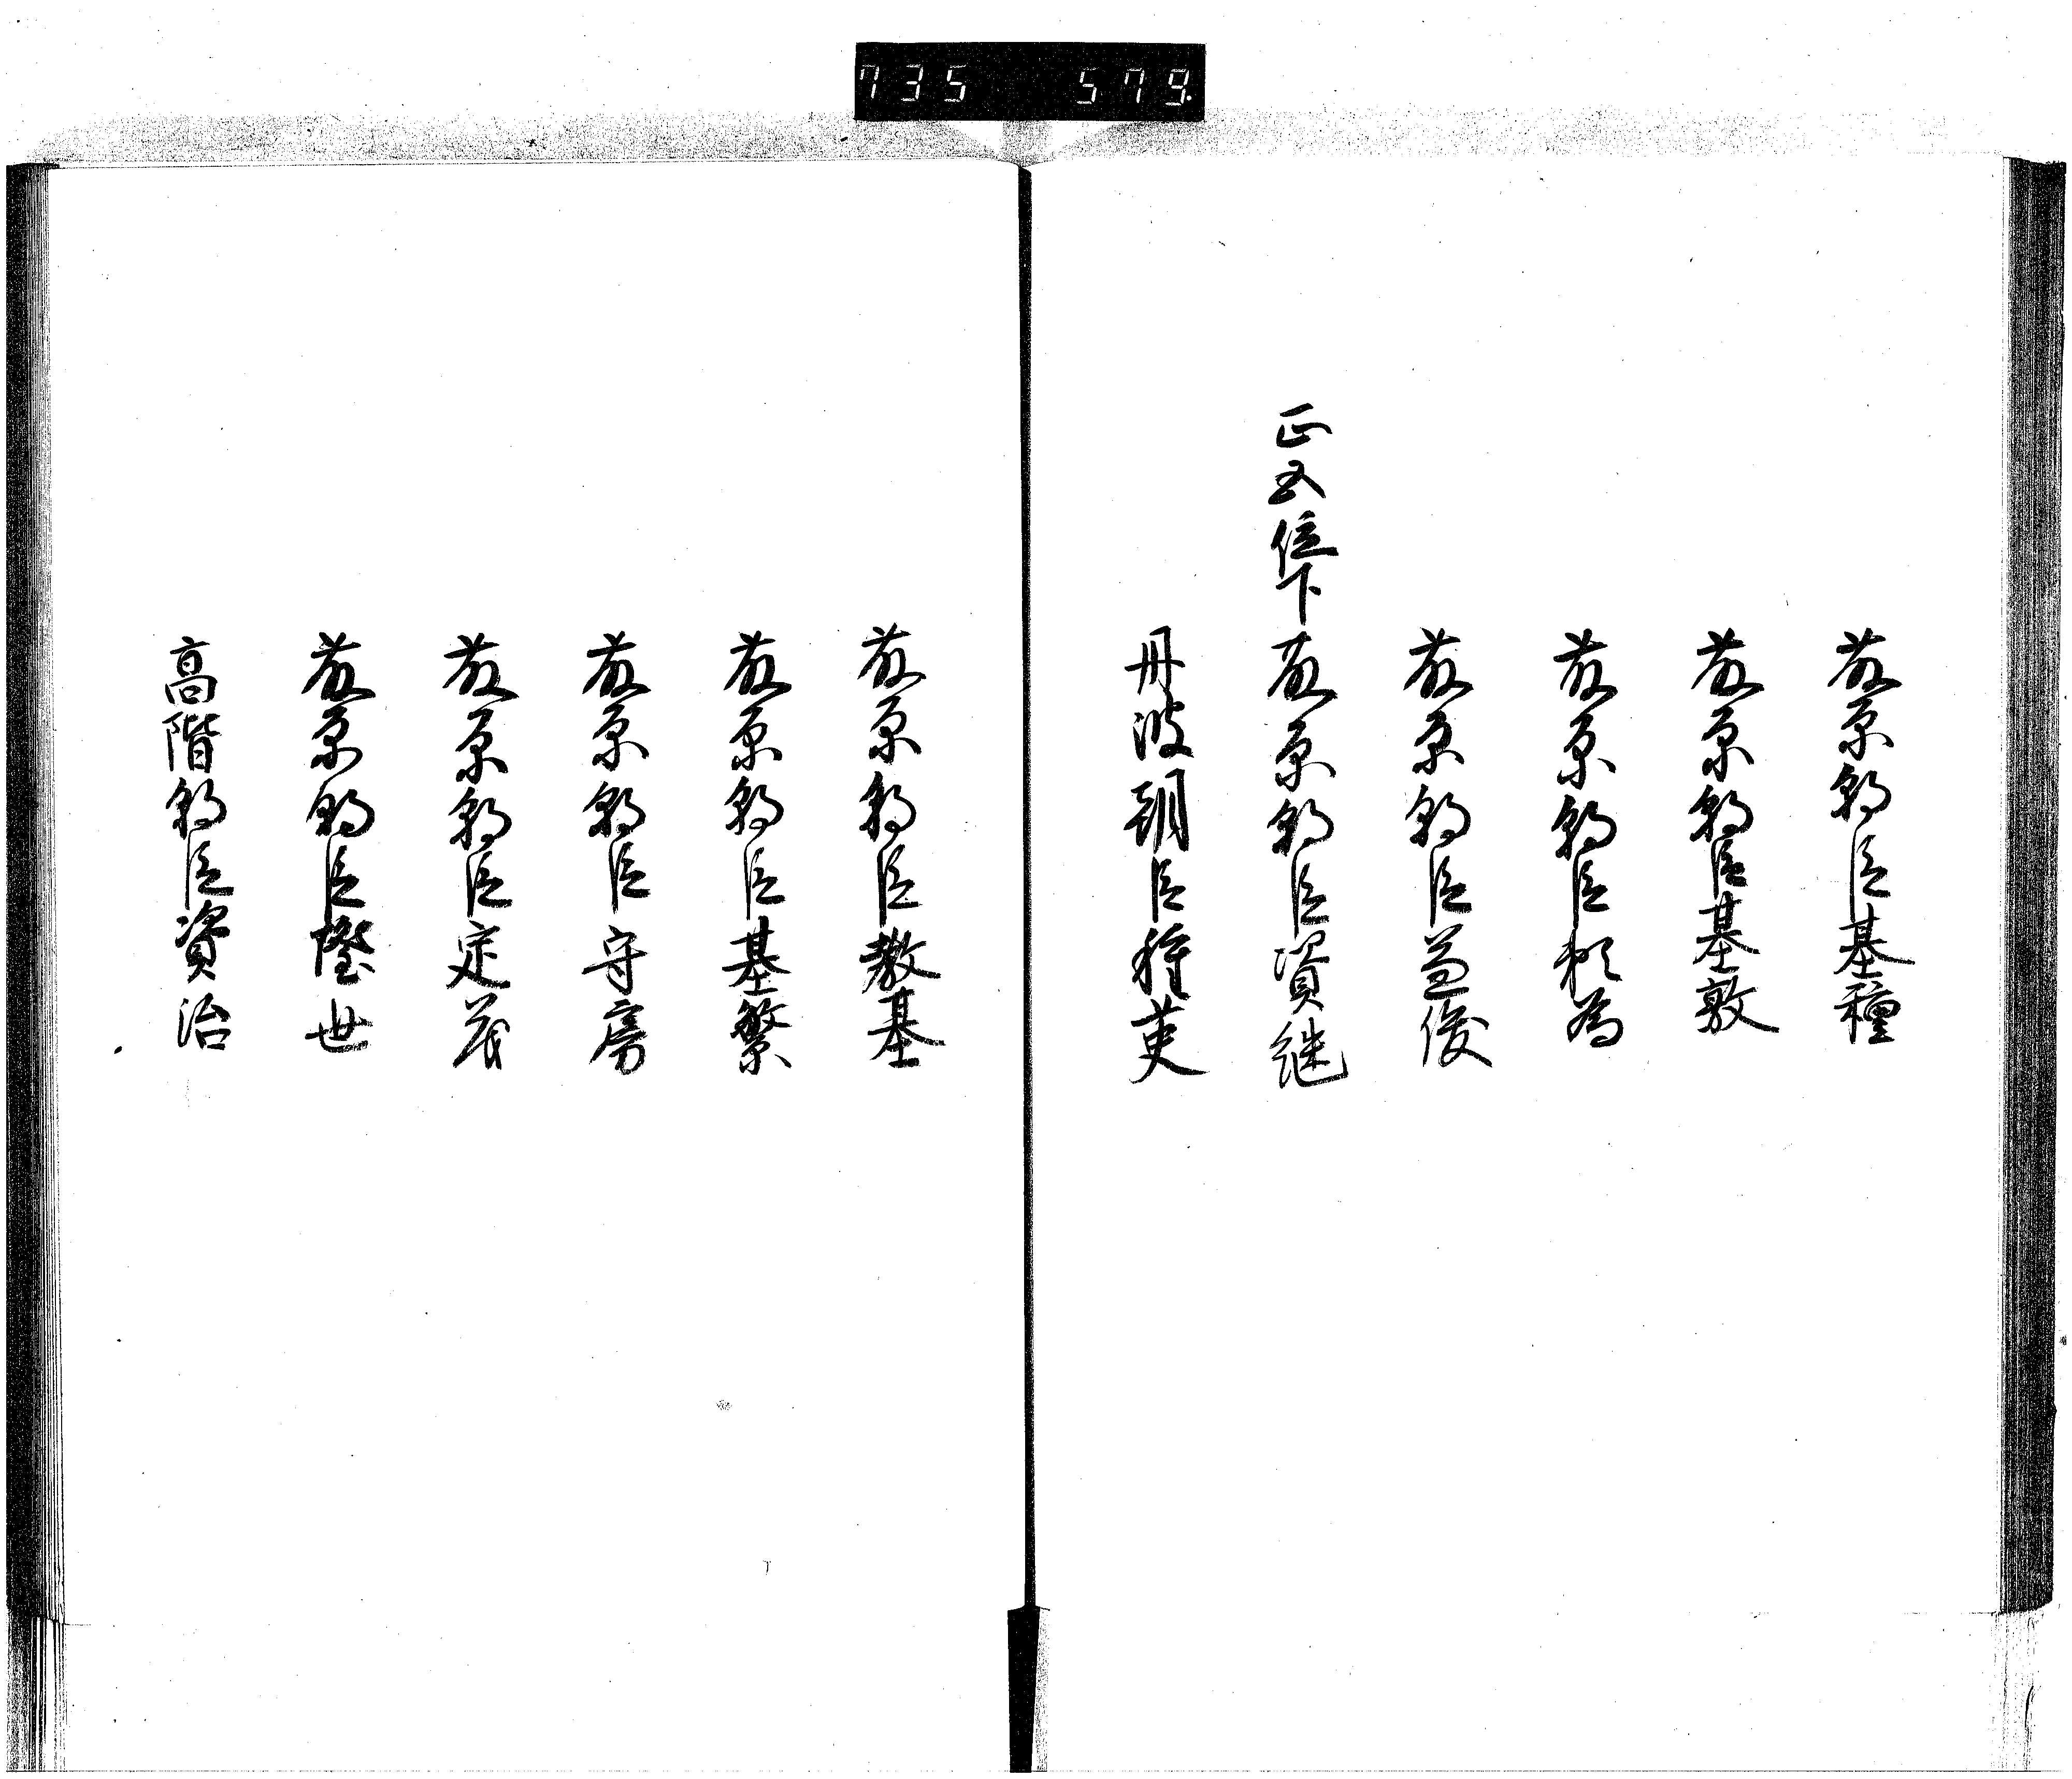 735 579
藤原朝臣基種
藤原朝臣基敦
藤原朝臣頼為
藤原朝臣益俊
正五位下藤原朝臣資継
丹波朝臣種英
藤原朝臣教基
藤原朝臣基繁
藤原朝臣守房
藤原朝臣定茂
藤原朝臣隆世
高階朝臣資治